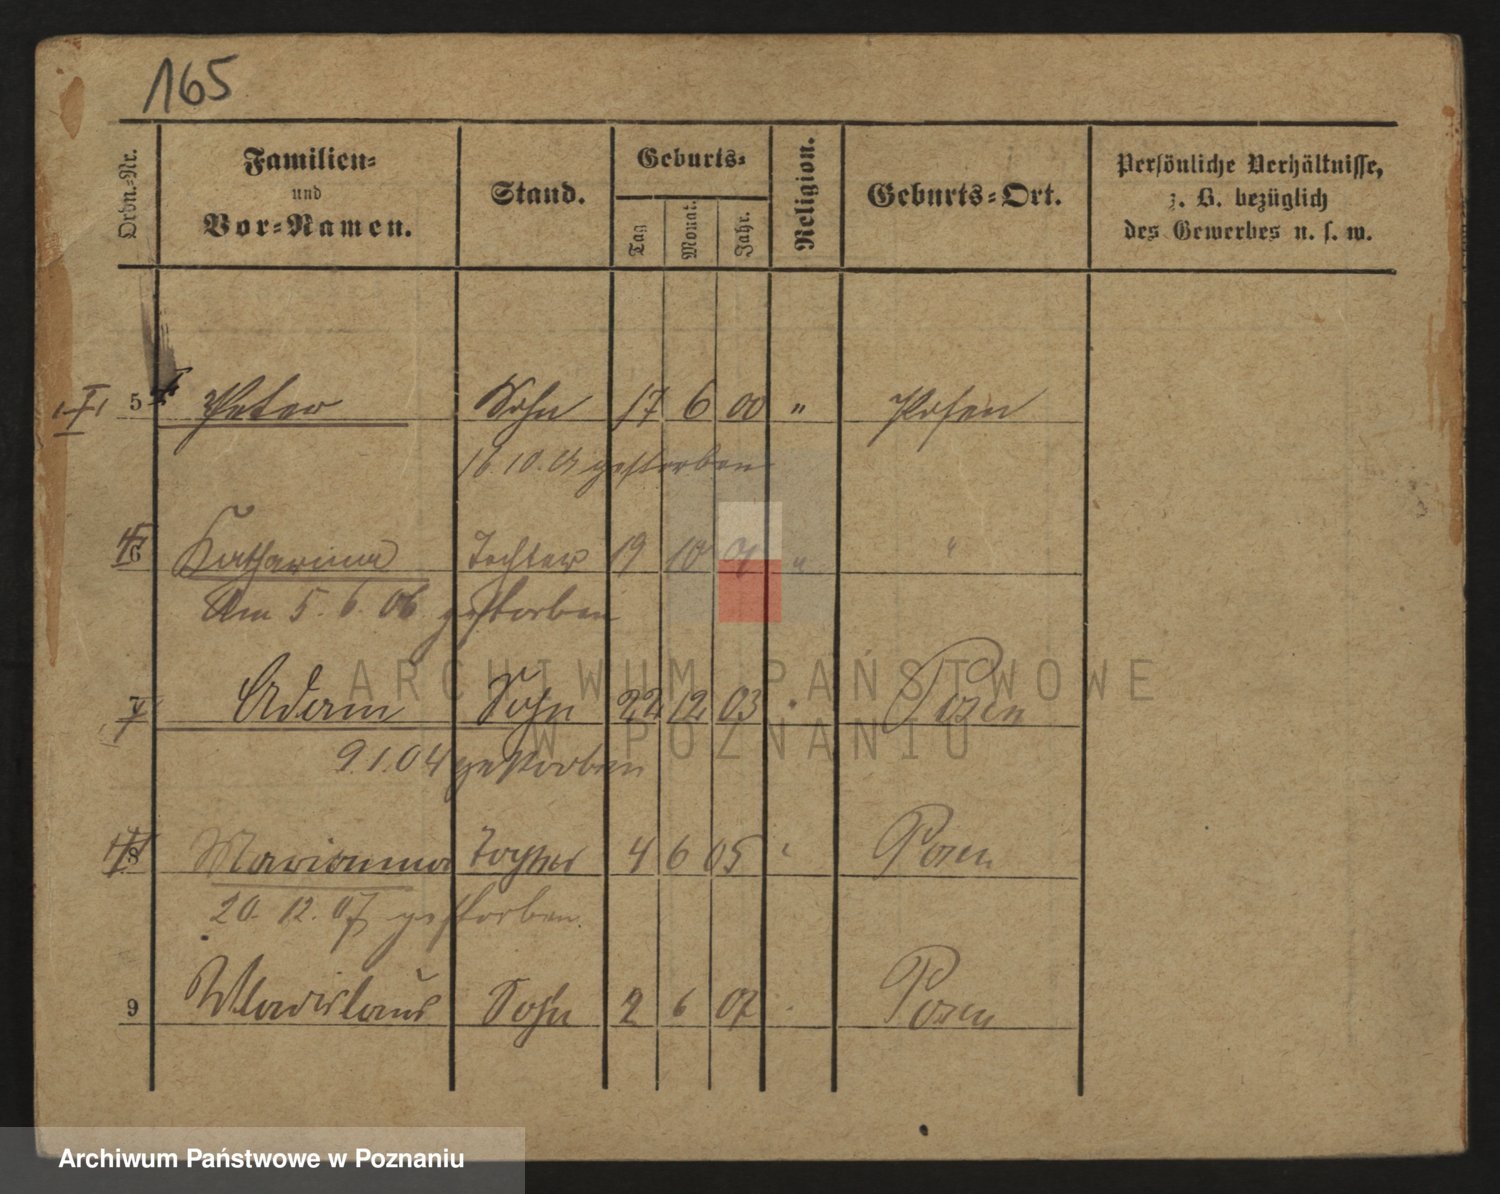 165
Ordn.-Nr. Familien- und Vor-Namen. Stand. Geburts- Tag Monat. Jahr. Religion. Geburts-Ort. Persönliche Verhältnisse, z. B. bezüglich des Gewerbes u. s. w.
5 Peter Sohn 17 6 00 " Posen
18.10. gestorben
6 Katharina Tochter 19 10 " "
Am 5. 6. 06 gestorben
7 Adam Sohn 22 12 03 Posen
9.1.04 gestorben
8 Marianna Tochter 4 6 05 Posen
20. 12. 07 gestorben
9 Wladislaus Sohn 2 6 07 Posen
ARCHIWUM PAŃSTWOWE
W POZNANIU
Archiwum Państwowe w Poznaniu